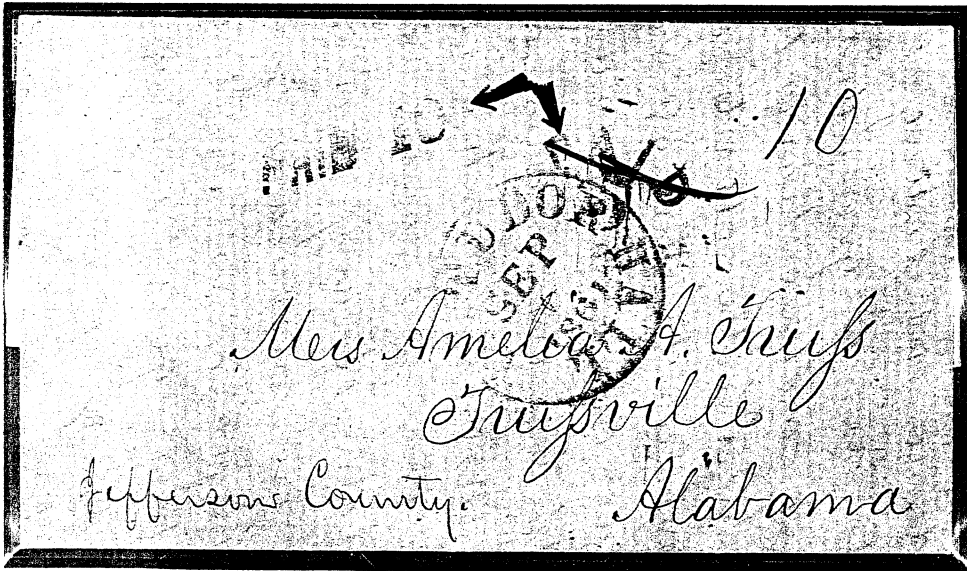 PAID 10
10
SEP
1861
Mrs Amelia A. Truss
Trussville
Jefferson County.
Alabama